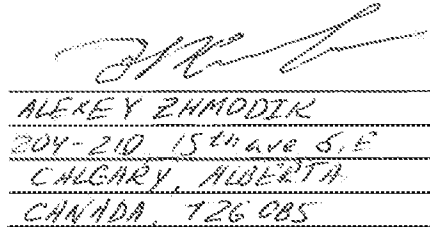 ALEXEY ZHMODIK
204-210, 15th ave S.E
CALGARY, ALBERTA
CANADA, T2G 0B5